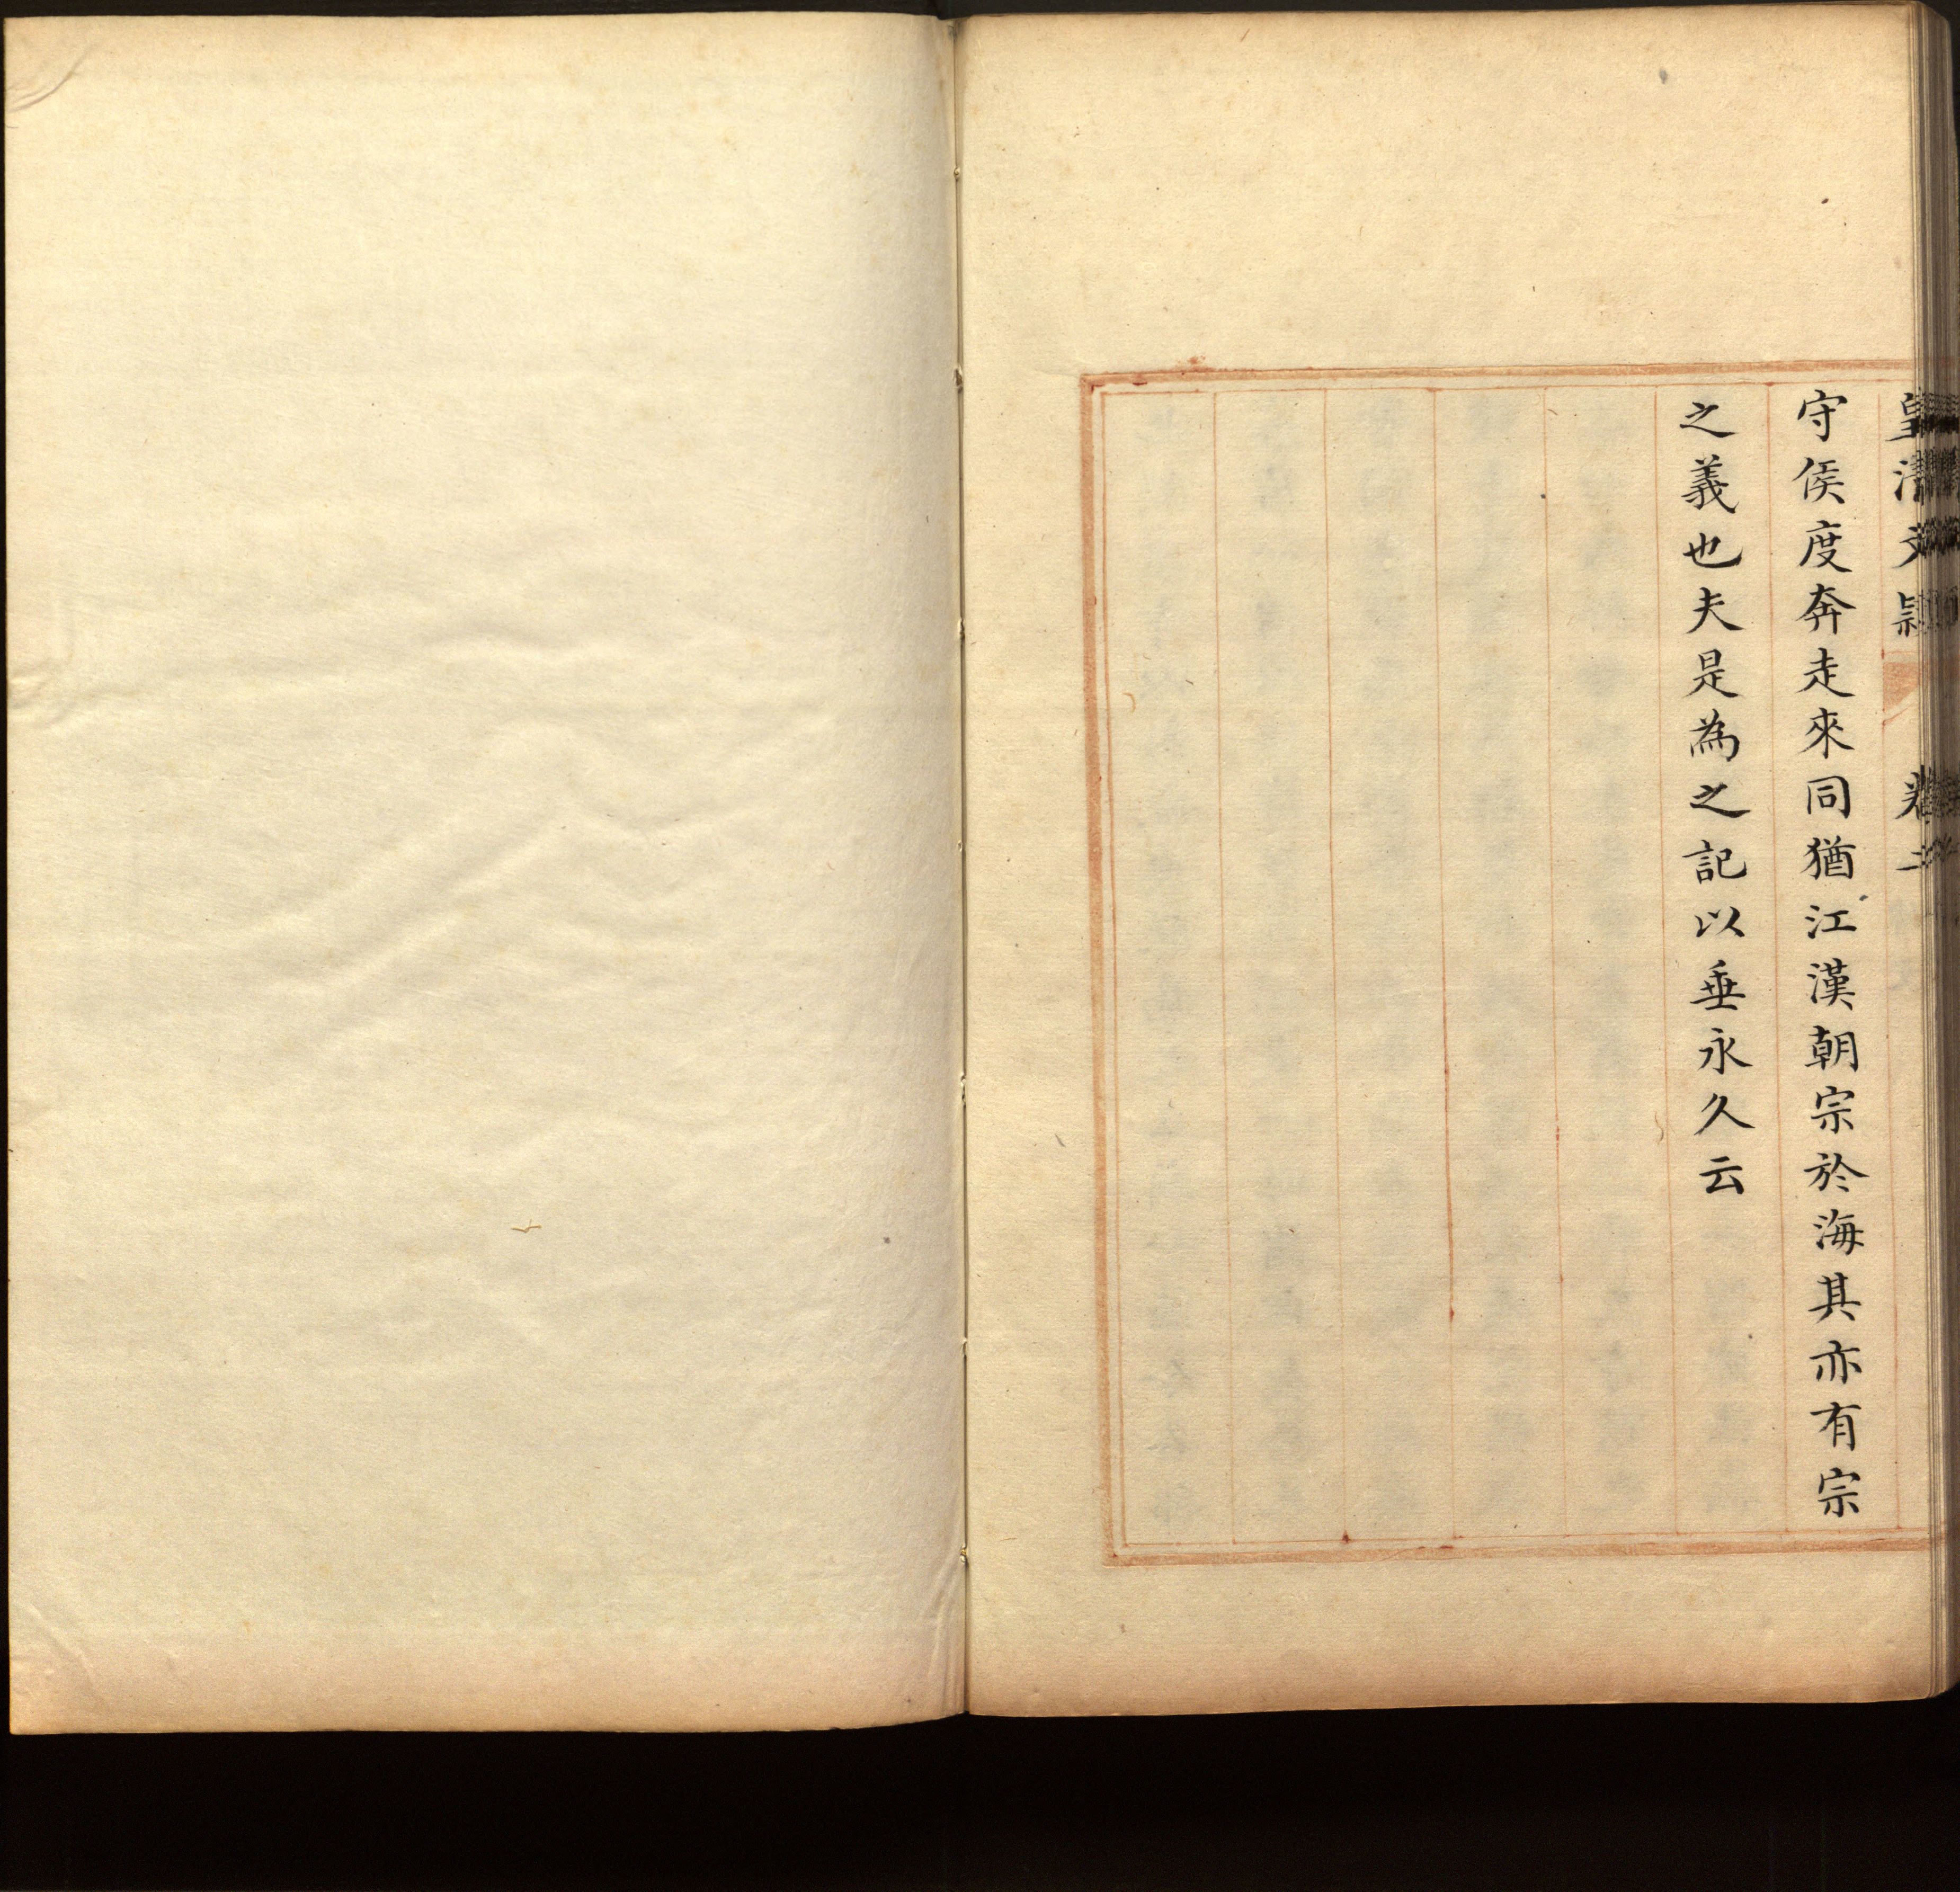 皇清文穎 卷二
守侯度奔走來同猶江漢朝宗於海其亦有宗
之義也夫是為之記以垂永久云